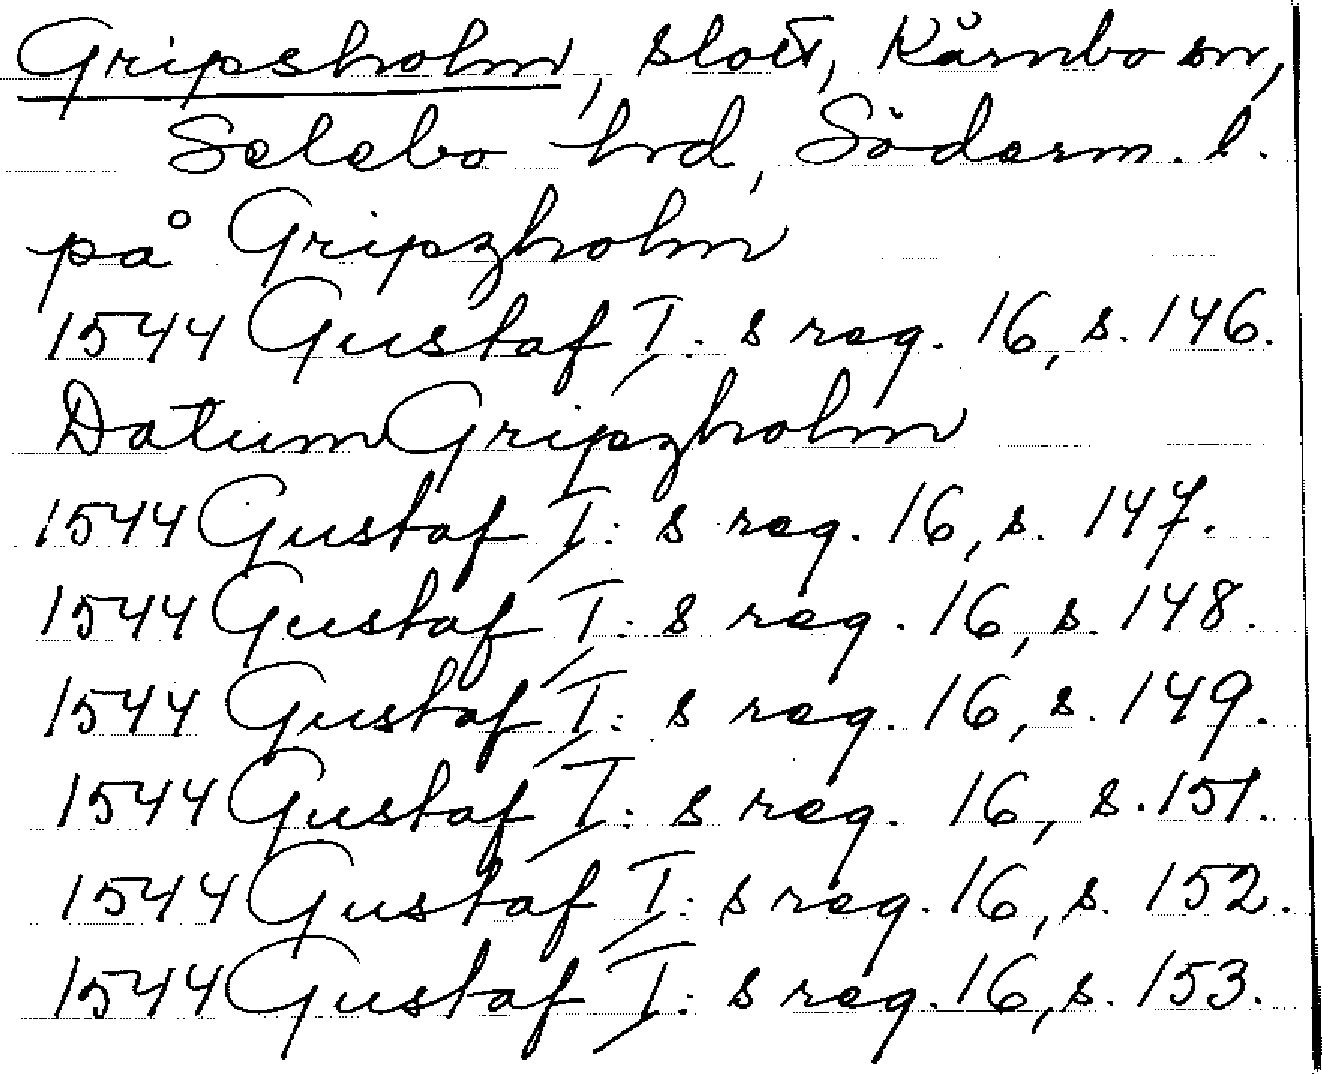 Gripsholm, slott, Kärnbo sn,
Selebo hrd, Söderm. l.
på Gripzholm
1544 Gustaf I: s reg. 16, s. 146.
Datum Gripzholm
1544 Gustaf I: s reg. 16, s. 147.
1544 Gustaf I: s reg. 16, s. 148.
1544 Gustaf I: s reg. 16, s. 149.
1544 Gustaf I: s reg. 16, s. 151.
1544 Gustaf I: s reg. 16, s. 152.
1544 Gustaf I: s reg. 16, s. 153.